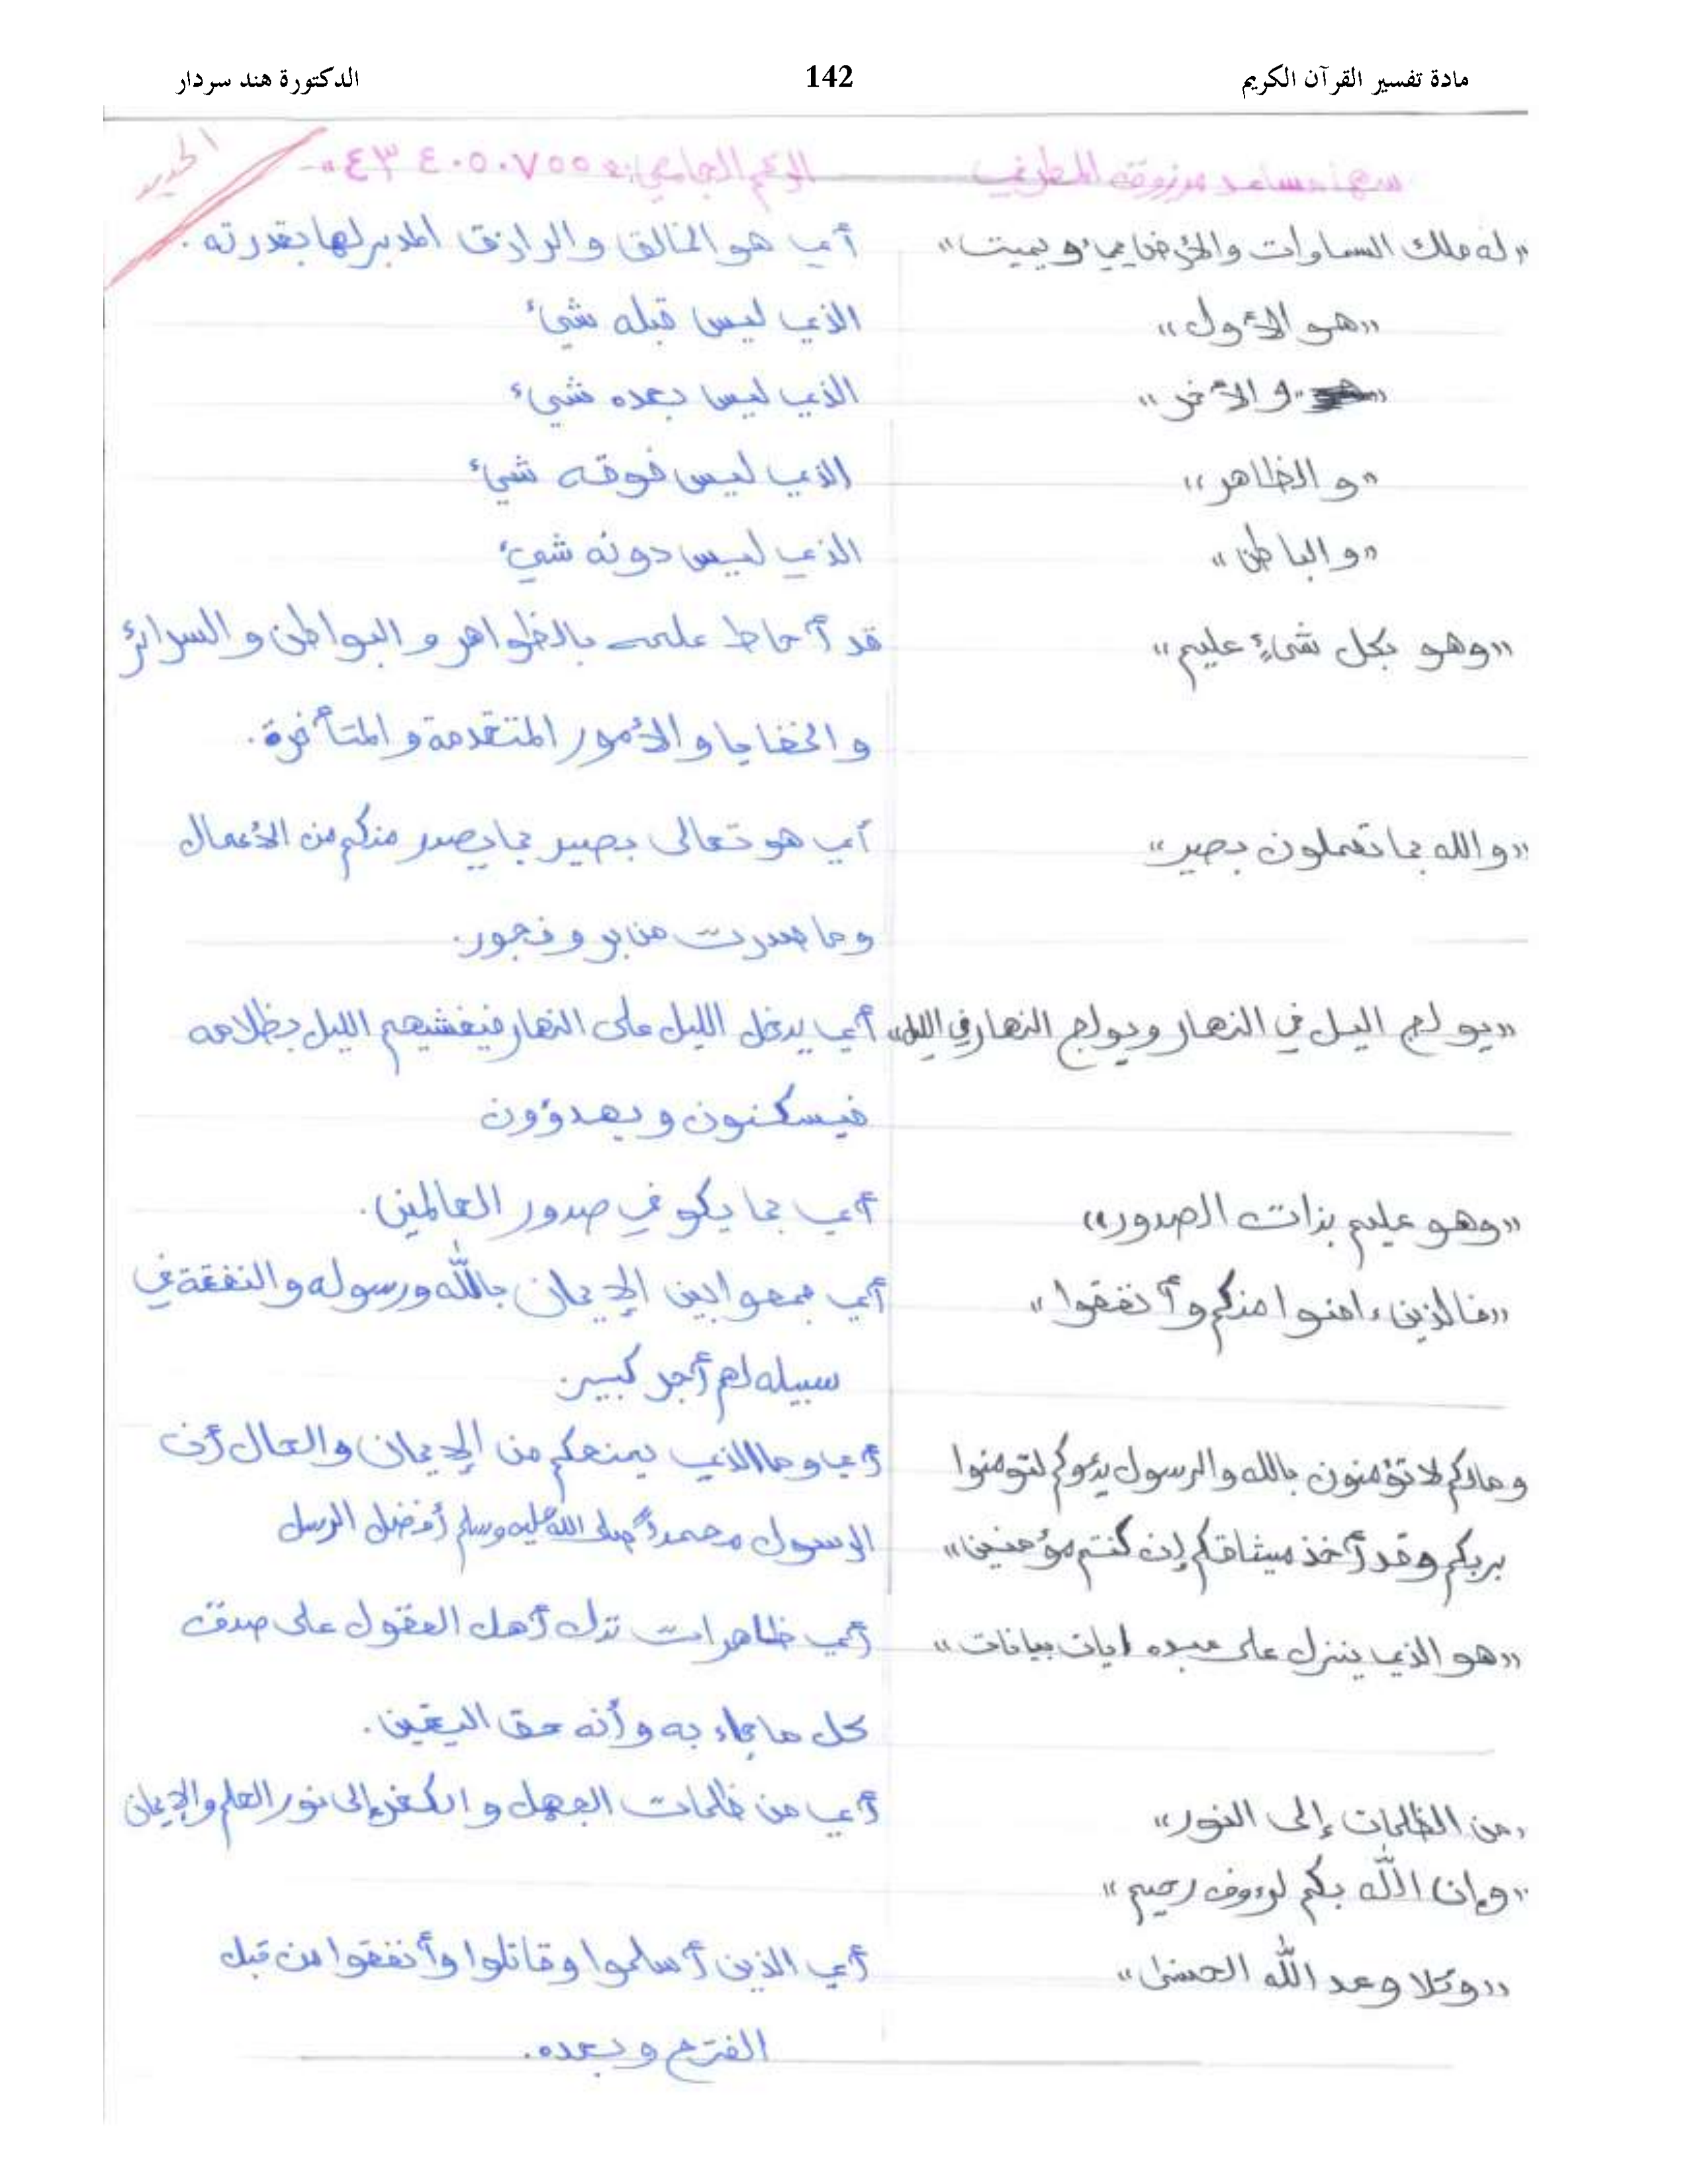 مادة تفسير القرآن الكريم 142 الدكتورة هند سردار
الحديد
سها مساعد مرزوقه المطرفي الرقم الجامعي: ٤٣٤٠٥٠٧٥٥
«له ملك السماوات والأرض يحيي ويميت» أي هو الخالق والرازق المدبر لها بقدرته.
«هو الأول» الذي ليس قبله شيء
«والأخر» الذي ليس بعده شيء
«والظاهر» الذي ليس فوقه شيء
«والباطن» الذي ليس دونه شيء
«وهو بكل شيءٍ عليم» قد أحاط علمه بالظواهر والبواطن والسرائر
والخفايا والأمور المتقدمة والمتأخرة.
«والله بما تعملون بصير» أي هو تعالى بصير بما يصدر منكم من الأعمال
وما صدرت من بر وفجور.
«يولج اليل في النهار ويولج النهار في الليل» أي يدخل الليل على النهار فيغشيهم الليل بظلامه
فيسكنون ويهدؤون
«وهو عليم بذات الصدور» أي بما يكو في صدور العالمين.
«فالذين ءامنوا منكم وأنفقوا» أي جمعوا بين الإيمان بالله ورسوله والنفقة في
سبيله لهم أجر كبير.
ومالكم لا تؤمنون بالله والرسول يدعوكم لتومنوا أي وما الذي يمنعكم من الإيمان والحال أن
بربكم وقد أخذ ميثاقكم إن كنتم مؤمنين» الرسول محمداً صلى الله عليه وسلم أفضل الرسل
«هو الذي ينزل على عبده ايات بيانات» أي ظاهرات تدل أهل العقول على صدق
كل ما جاء به وأنه حق اليقين.
«من الظلمات إلى النور» أي من ظلمات الجهل والكفر إلى نور العلم والإيمان
«وإن الله بكم لرءوف رحيم»
«وكلا وعد الله الحسنى» أي الذين أسلموا وقاتلوا وأنفقوا من قبل
الفتح وبعده.